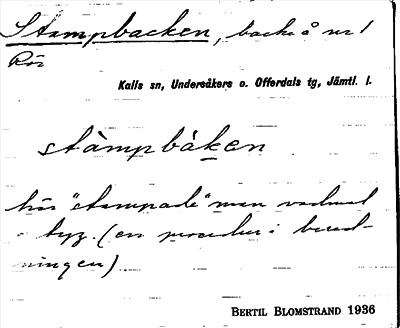 Stampbacken, backe å nr 1
Rör
Kalls sn, Undersåkers o. Offerdals tg, Jämtl. l.
stàmpbàken
här "stampade" man vadmal
tyg. (en procedur i bered-
ningen)
BERTIL BLOMSTRAND 1936